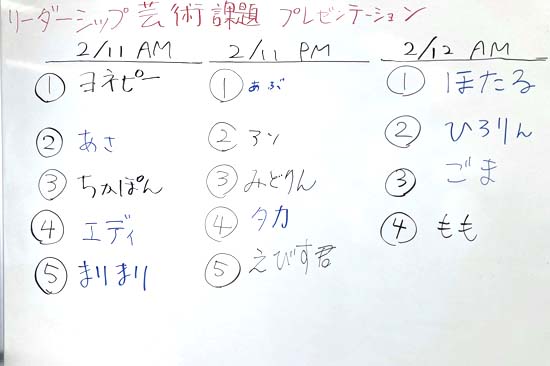 リーダーシップ芸術課題 プレゼンテーション
2/11 AM
① ヨネピー
② あさ
③ ちかぽん
④ エディ
⑤ まりまり
2/11 PM
① あぶ
② アン
③ みどりん
④ タカ
⑤ えびす君
2/12 AM
① ほたる
② ひろりん
③ ごま
④ もも